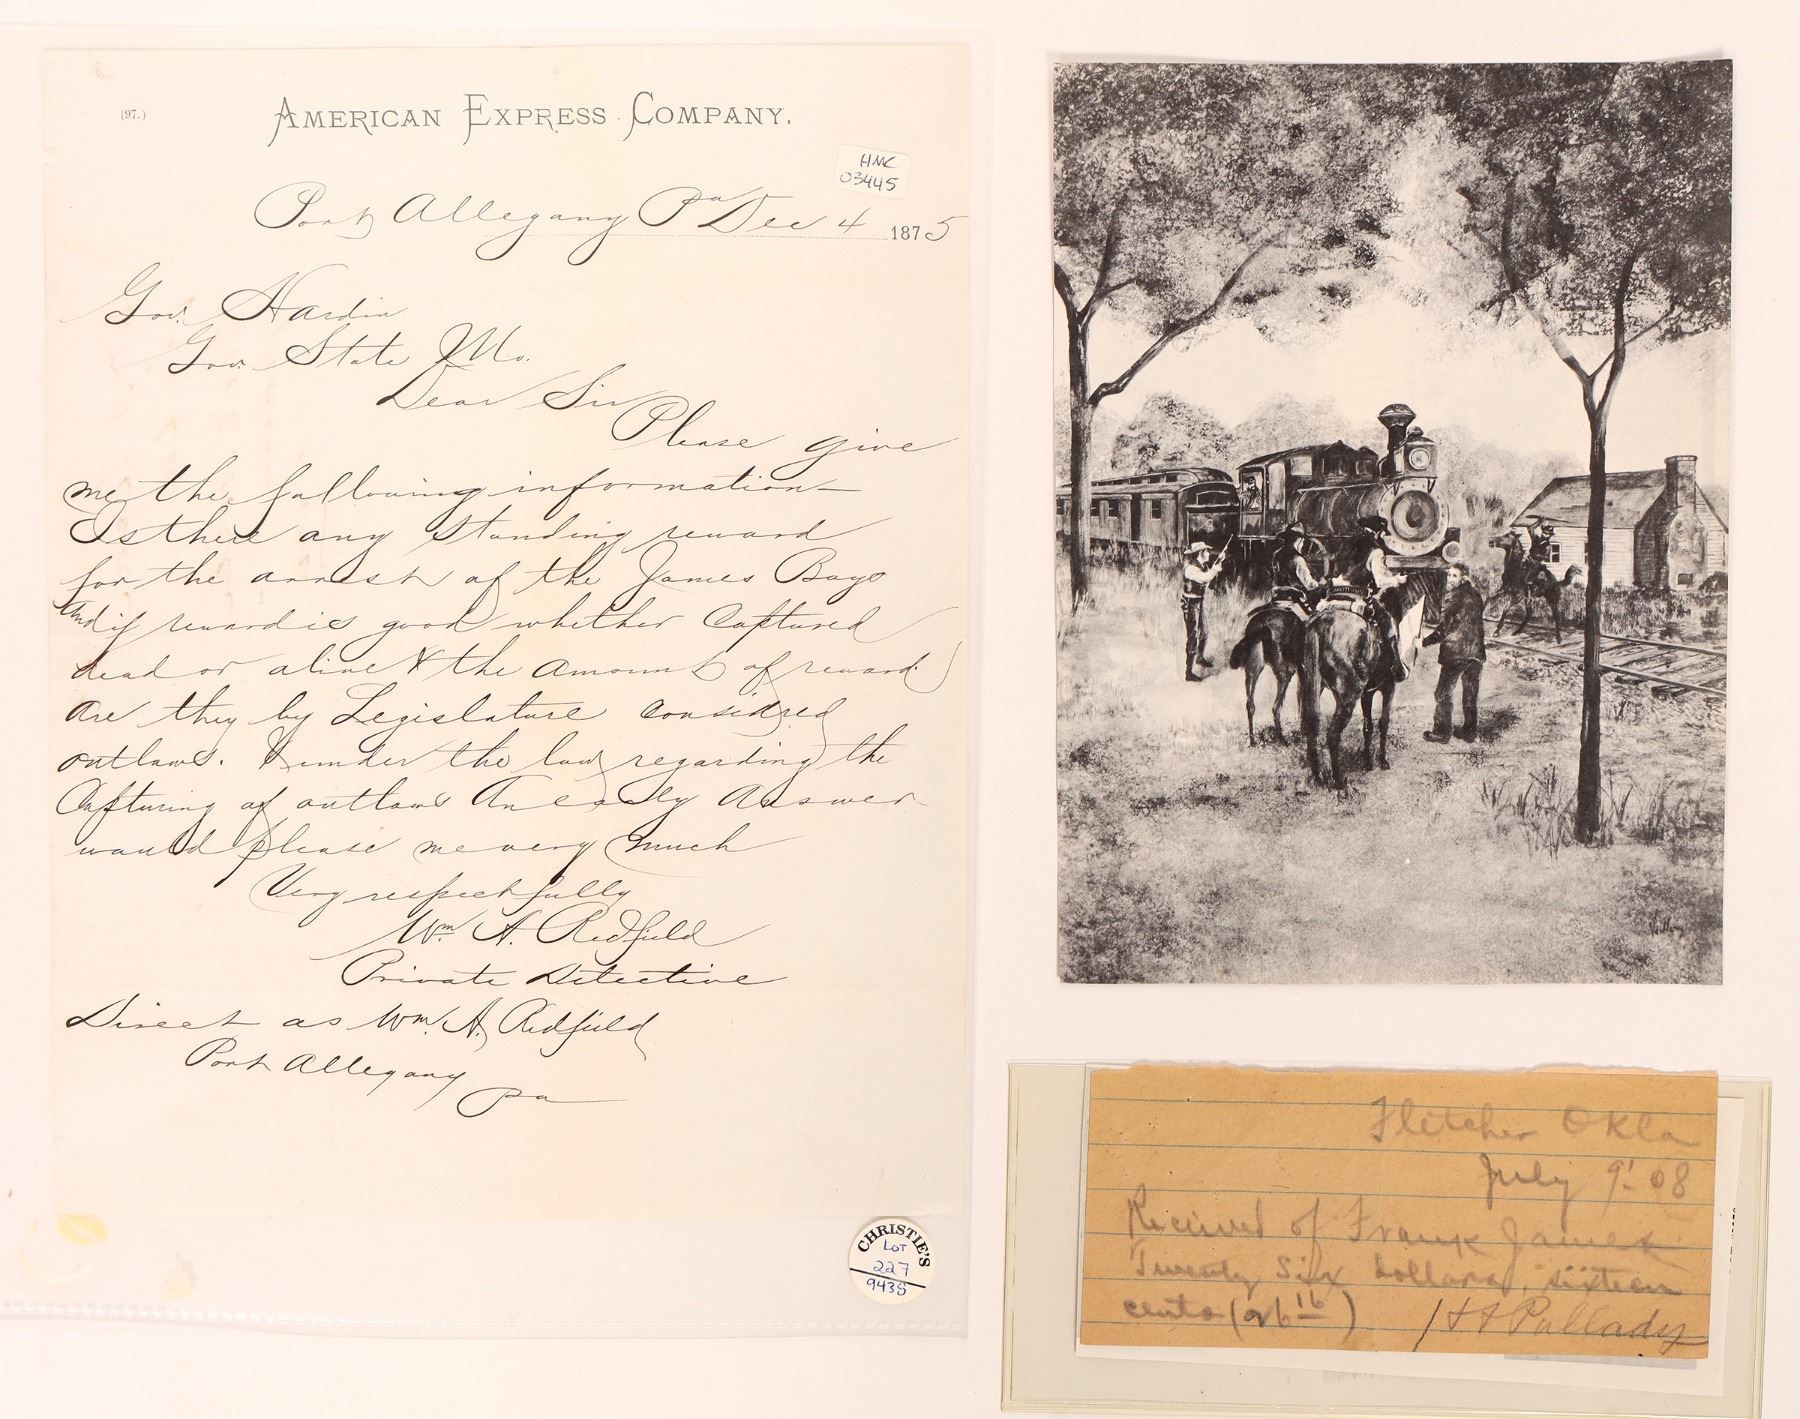 (97.)
AMERICAN EXPRESS COMPANY.
HMC
03445
Port Allegany Pa Dec 4 1875
Gov. Hardin
Gov. State Mo.
Dear Sir
Please give
me the following information
Is there any standing reward
for the arrest of the James Boys
and if reward is good whether captured
dead or alive & the amount of reward.
are they by Legislature considred
outlaws. & under the law regarding the
Capturing of outlaws An early answer
would please me very much
Very respectfully
Wm A. Redfield
Private Detective
Direct as Wm. A. Redfield
Port Allegany
Pa
CHRISTIE'S
LOT
227
9438
Fletcher Okla
July 9' 08
Received of Frank James
Twenty Six dollars, sixteen
cents (26 16) Pallady